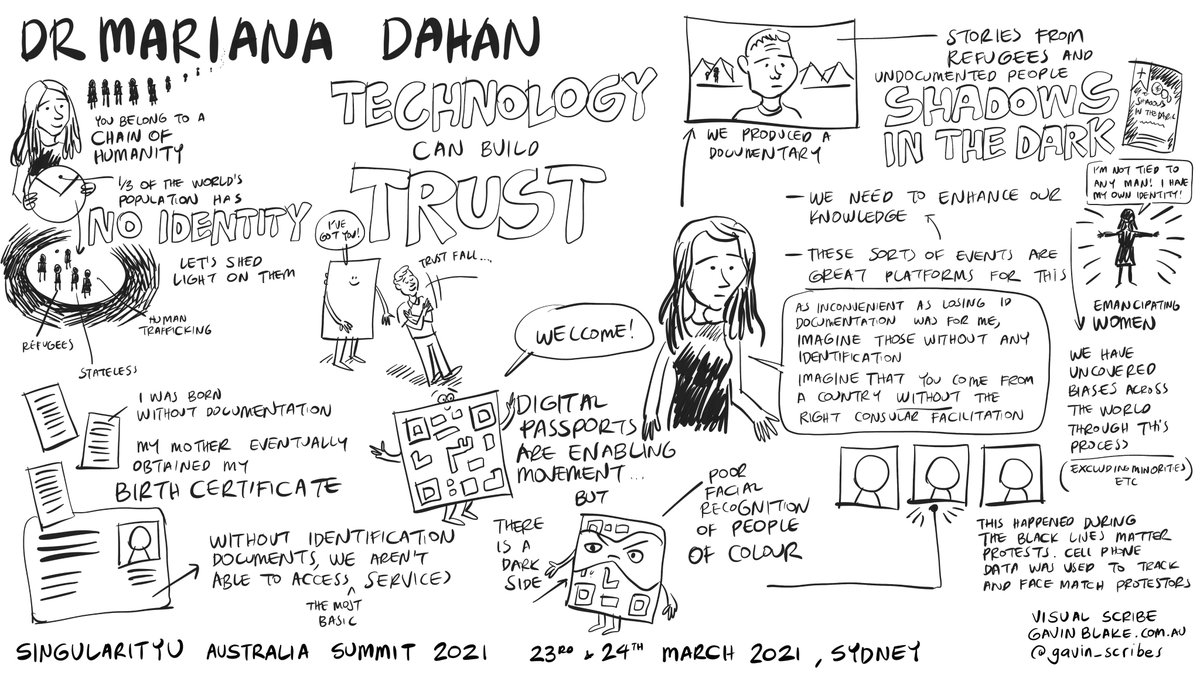 DR MARIANA DAHAN
YOU BELONG TO A
CHAIN OF
HUMANITY
1/3 OF THE WORLD'S
POPULATION HAS
NO IDENTITY
LET'S SHED
LIGHT ON THEM
HUMAN
TRAFFICKING
REFUGEES
STATELESS
I WAS BORN
WITHOUT DOCUMENTATION
MY MOTHER EVENTUALLY
OBTAINED MY
BIRTH CERTIFICATE
WITHOUT IDENTIFICATION
DOCUMENTS, WE AREN'T
ABLE TO ACCESS SERVICES
^
THE MOST
BASIC
TECHNOLOGY
CAN BUILD
TRUST
I'VE
GOT YOU!
TRUST FALL....
WELCOME!
DIGITAL
PASSPORTS
ARE ENABLING
MOVEMENT...
BUT
THERE
IS A
DARK
SIDE
POOR
FACIAL
RECOGNITION
OF PEOPLE
OF COLOUR
WE PRODUCED A
DOCUMENTARY
STORIES FROM
REFUGEES AND
UNDOCUMENTED PEOPLE
SHADOWS
IN THE DARK
SHADOWS
IN THE DARK
— WE NEED TO ENHANCE OUR
KNOWLEDGE
— THESE SORTS OF EVENTS ARE
GREAT PLATFORMS FOR THIS
AS INCONVENIENT AS LOSING ID
DOCUMENTATION WAS FOR ME,
IMAGINE THOSE WITHOUT ANY
IDENTIFICATION
IMAGINE THAT YOU COME FROM
A COUNTRY WITHOUT THE
RIGHT CONSULAR FACILITATION
I'M NOT TIED TO
ANY MAN! I HAVE
MY OWN IDENTITY!
EMANCIPATING
WOMEN
WE HAVE
UNCOVERED
BIASES ACROSS
THE WORLD
THROUGH THIS
PROCESS
(EXCLUDING MINORITIES)
ETC
THIS HAPPENED DURING
THE BLACK LIVES MATTER
PROTESTS. CELL PHONE
DATA WAS USED TO TRACK
AND FACE MATCH PROTESTORS
SINGULARITYU AUSTRALIA SUMMIT 2021 23RD & 24TH MARCH 2021, SYDNEY
VISUAL SCRIBE
GAVIN BLAKE.COM.AU
@gavin_scribes